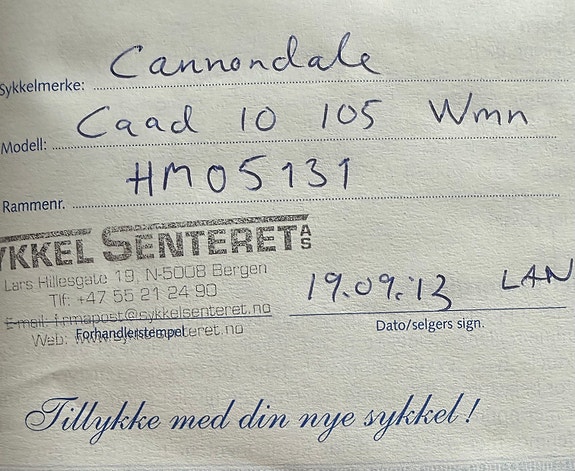 Sykkelmerke: Cannondale
Modell: Caad 10 105 Wmn
Rammenr. HM05131
SYKKEL SENTERET AS
Lars Hillesgate 19, N-5008 Bergen
Tlf: +47 55 21 24 90
E-mail: firmapost@sykkelsenteret.no
Forhandlerstempel
Web: www.sykkelsenteret.no
19.09.13 LAN
Dato/selgers sign.
Tillykke med din nye sykkel!